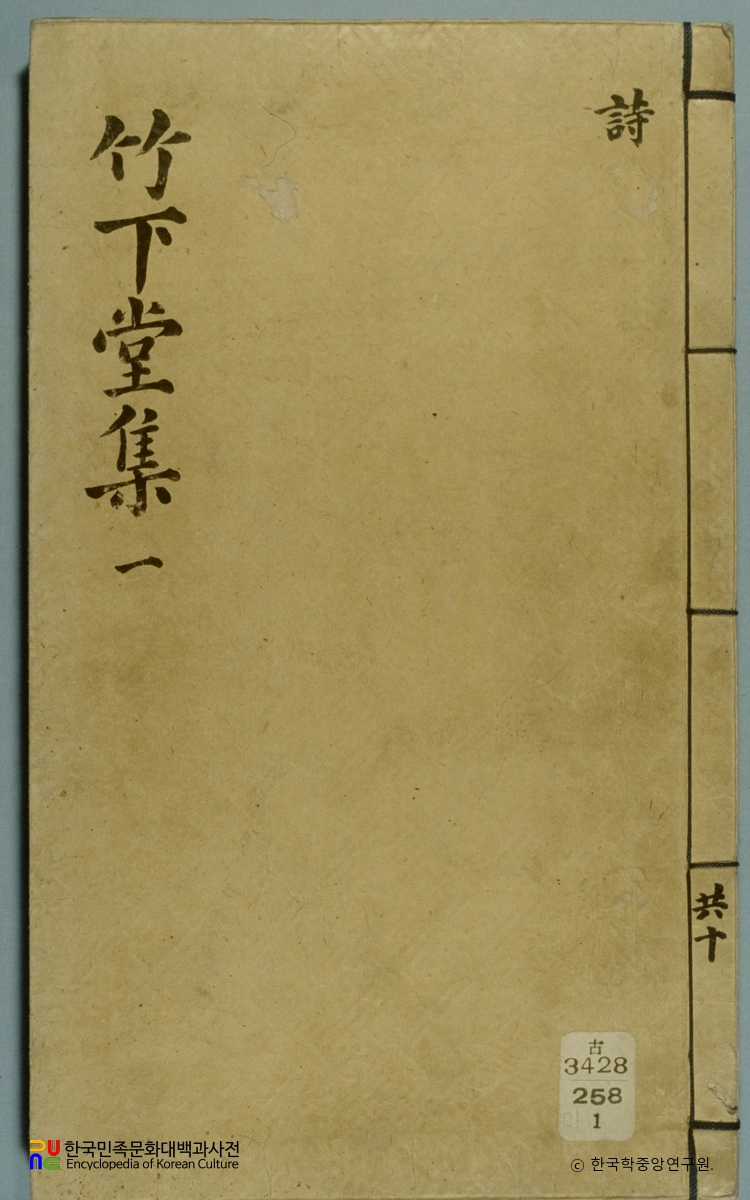 詩
竹下堂集 一
共十
古
3428
258
1
한국민족문화대백과사전
Encyclopedia of Korean Culture
ⓒ 한국학중앙연구원.